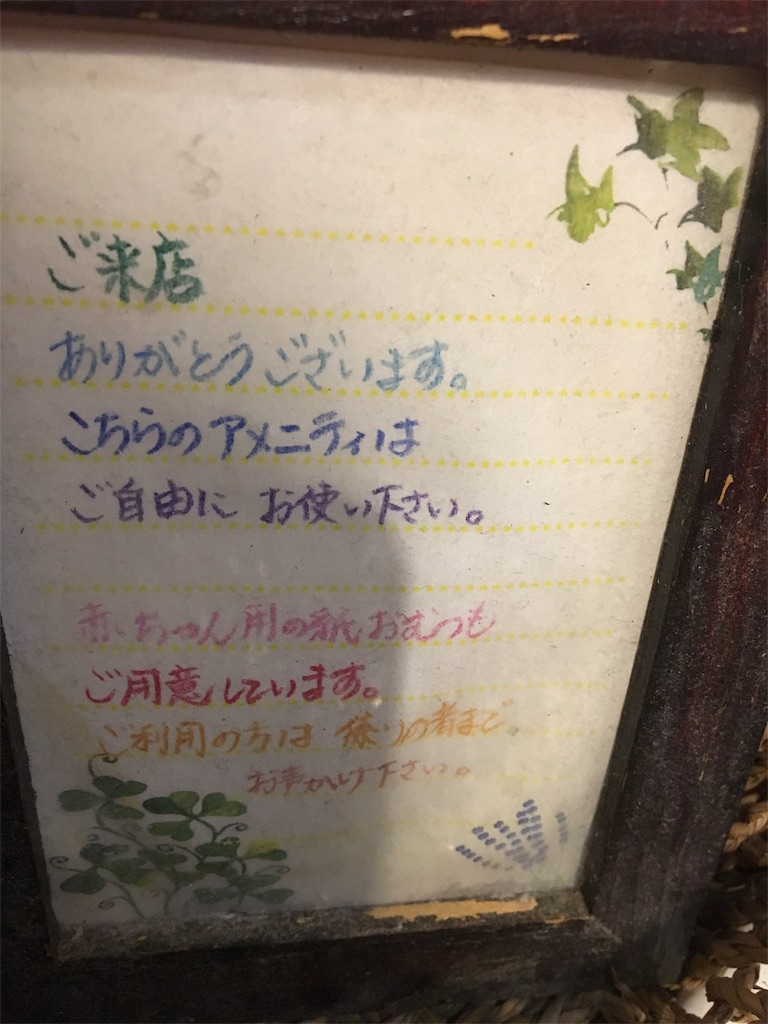 ご来店
ありがとうございます。
こちらのアメニティは
ご自由に お使い下さい。
赤ちゃん用の紙おむつも
ご用意しています。
ご利用の方は 係りの者まで。
お声かけ下さい。